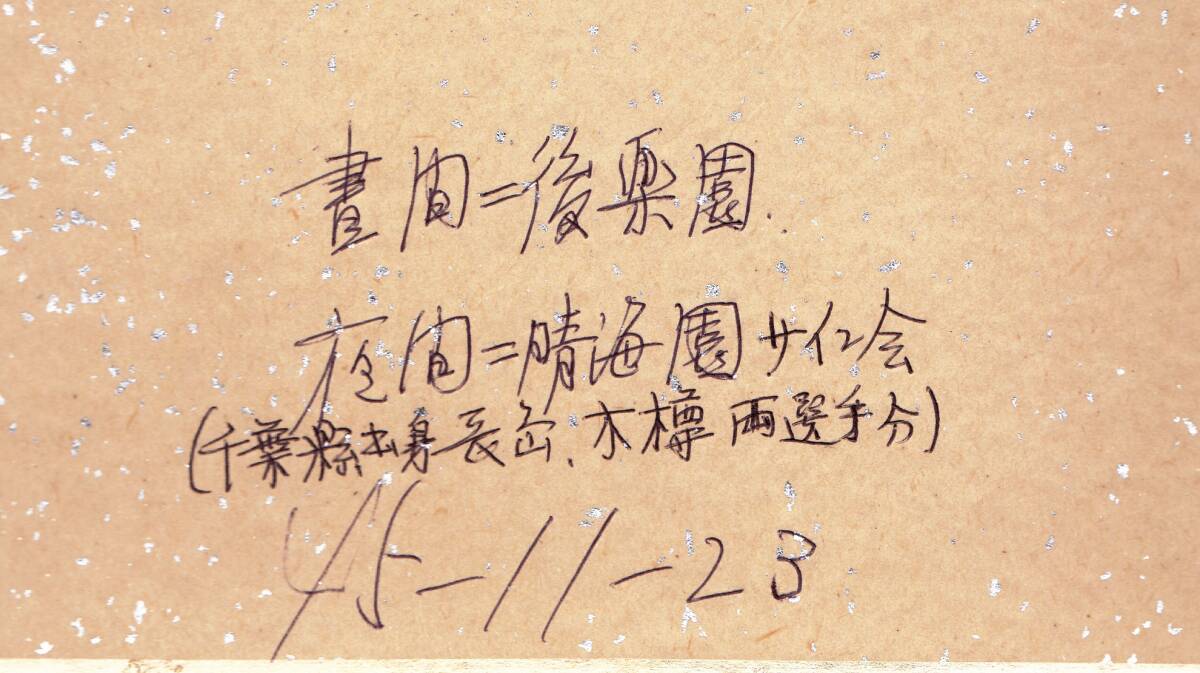 晝間=後楽園.
夜間=晴海園サイン会
(千葉縣出身長岳、木樽 両選手分)
45-11-23